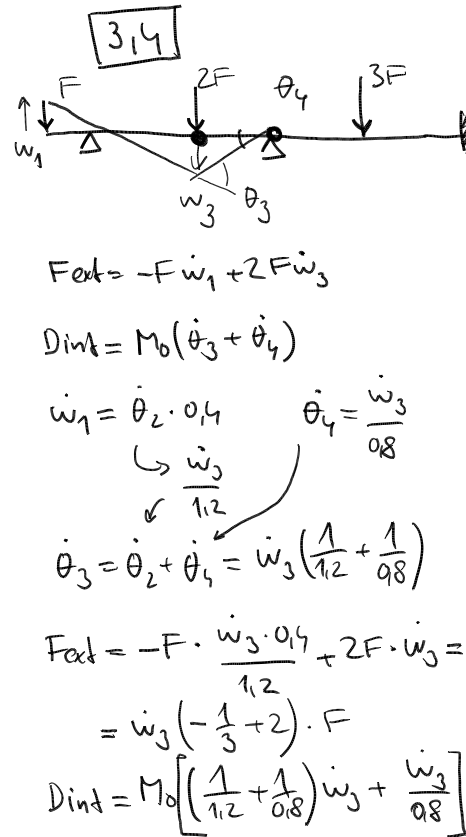 3,4
F 2F θ4 3F
w1
w3 θ3
Fext = -Fẇ1 + 2Fẇ3
Dint = M0(θ̇3 + θ̇4)
ẇ1 = θ̇2 · 0,4 θ̇4 = ẇ3/0,8
ẇ3/1,2
θ̇3 = θ̇2 + θ̇4 = ẇ3(1/1,2 + 1/0,8)
Fext = -F · ẇ3·0,4/1,2 + 2F · ẇ3 =
= ẇ3(-1/3 + 2) · F
Dint = M0[(1/1,2 + 1/0,8)ẇ3 + ẇ3/0,8]